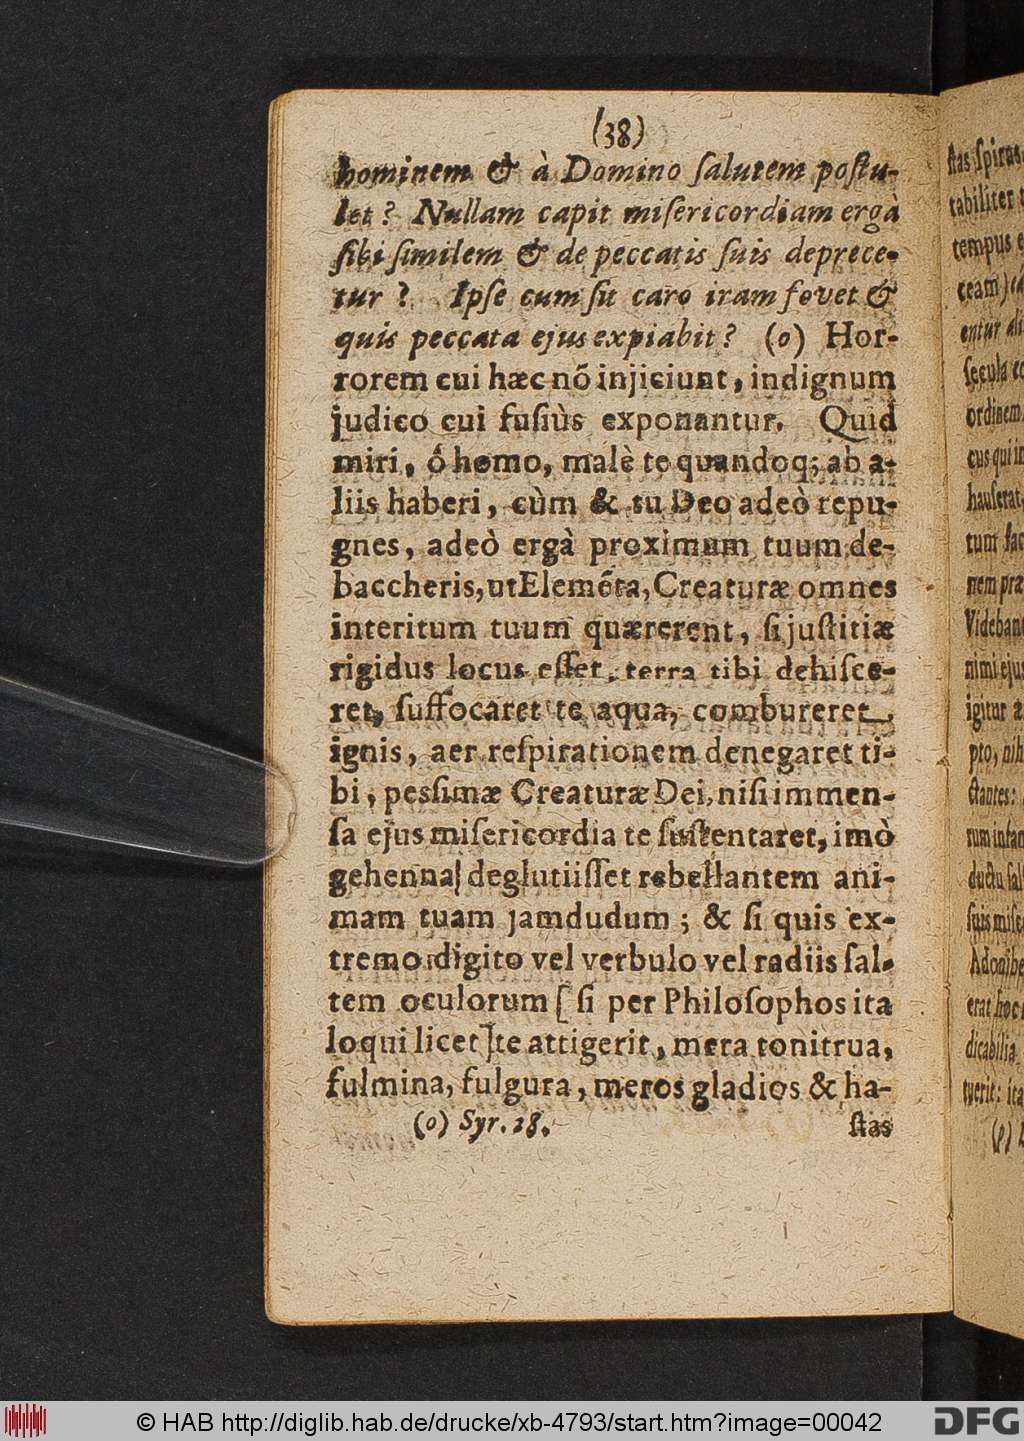 (38)
hominem & à Domino ſalutem poſtu-
let? Nullam capit miſericordiam ergà
ſibi ſimilem & de peccatis ſuis deprece-
tur? Ipſe cum ſit caro iram fovet &
quis peccata ejus expiabit? (o) Hor-
rorem cui hæc nõ injiciunt, indignum
judico cui fuſiùs exponantur. Quid
miri, ô homo, malè te quandoq; ab a-
liis haberi, cùm & tu Deo adeò repu-
gnes, adeò ergà proximum tuum de-
baccheris, ut Elemẽta, Creaturæ omnes
interitum tuum quærerent, ſi juſtitiæ
rigidus locus eſſet, terra tibi dehiſce-
ret, ſuffocaret te aqua, combureret
ignis, aer reſpirationem denegaret ti-
bi, peſſimæ Creaturæ Dei, niſi immen-
ſa ejus miſericordia te ſuſtentaret, imò
gehenna deglutiiſſet rebellantem ani-
mam tuam jamdudum; & ſi quis ex-
tremo digito vel verbulo vel radiis ſal-
tem oculorum [ ſi per Philoſophos ita
loqui licet ] te attigerit, mera tonitrua,
fulmina, fulgura, meros gladios & ha-
(o) Syr. 28. ſtas
ſtas ſpirus
tabiliter
tempus
ceam)
entur di
ſecula
ordinem
cus qui in
hauſerat
tum
nem præ
Videban
nimi ejus
igitur
pto, nih
ſtantes:
rum inſan
ductu ſal
ſuis miſe
erat hoc
dicabilia
tuerit: ita
(p)
© HAB http://diglib.hab.de/drucke/xb-4793/start.htm?image=00042
DFG